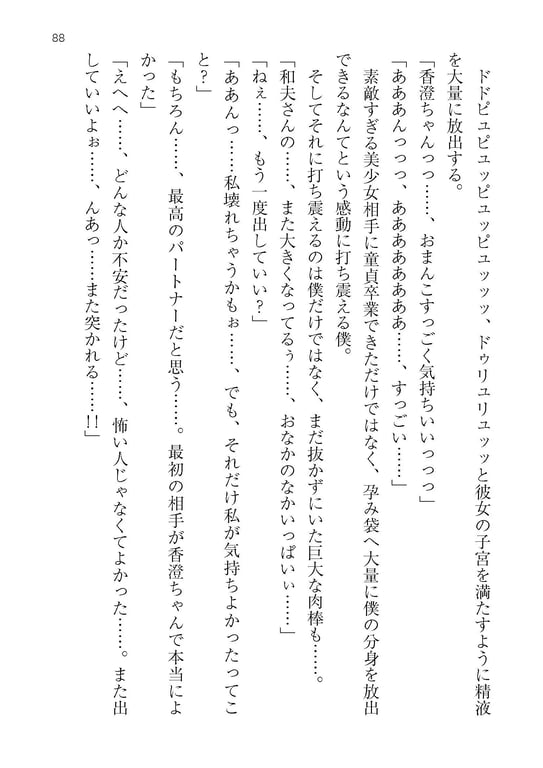 88
ドドピュピュッピュッピュッッッ、ドゥリユリユッッと彼女の子宮を満たすように精液
を大量に放出する。
「香澄ちゃんっっ……、おまんこすっごく気持ちいいっっっ」
「あああんっっっ、あああああああ……、すっごい……」
素敵すぎる美少女相手に童貞卒業できただけではなく、孕み袋へ大量に僕の分身を放出
できるなんてという感動に打ち震える僕。
そしてそれに打ち震えるのは僕だけではなく、まだ抜かずにいた巨大な肉棒も……。
「和夫さんの……、また大きくなってるぅ……、おなかのなかいっぱいぃ……」
「ねぇ……、もう一度出していい?」
「ああんっ……私壊れちゃうかもぉ……、でも、それだけ私が気持ちよかったってこ
と?」
「もちろん……、最高のパートナーだと思う……。最初の相手が香澄ちゃんで本当によ
かった」
「えへへ……、どんな人か不安だったけど……、怖い人じゃなくてよかった……。また出
していいよぉ……、んあっ……また突かれる……!!」